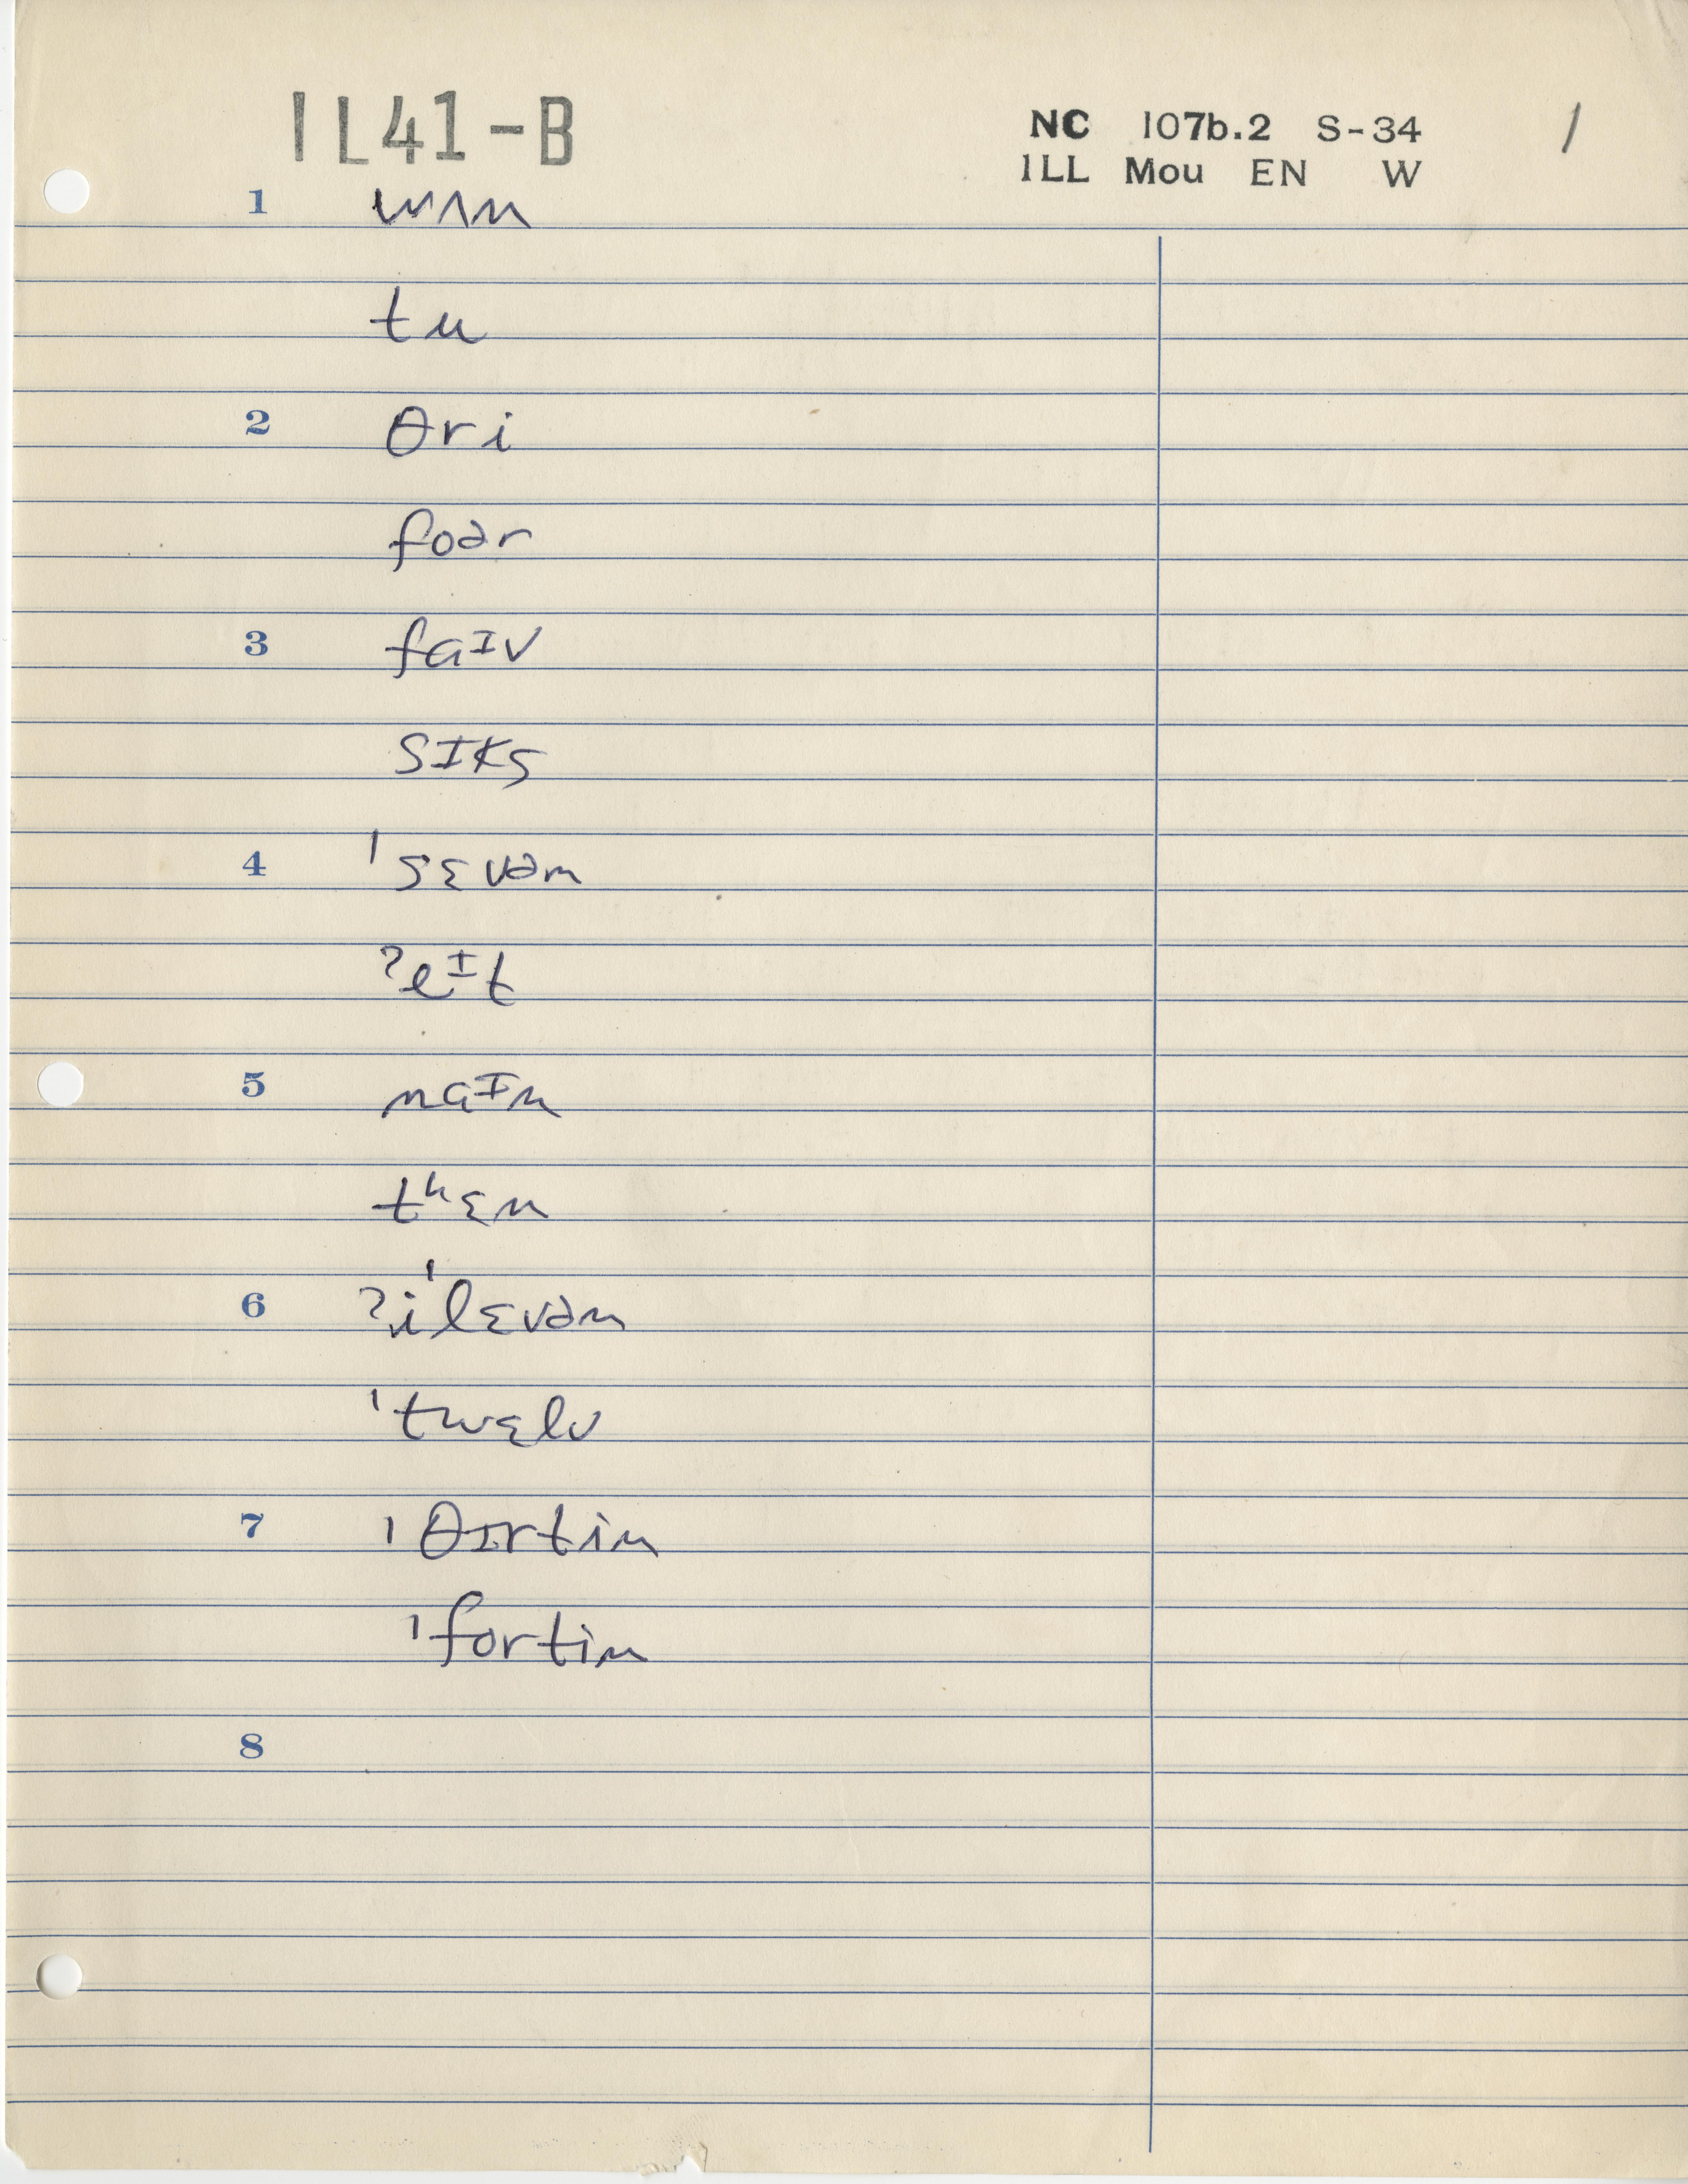 IL41-B
NC 107b.2 S-34 1
ILL Mou EN W
1 wʌn
tu
2 θri
foər
3 faᴵv
sɪks
4 ˈsɛvən
ʔeᴵt
5 naᴵn
tʰɛn
6 ʔiˈlɛvən
ˈtwɛlv
7 ˈθɪrtin
ˈfortin
8